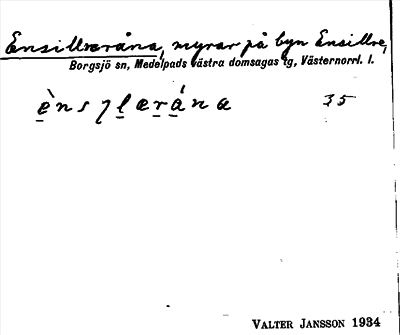 Ensillreråna, myrar på byn Ensillre,
Borgsjö sn, Medelpads västra domsagas tg, Västernorrl. l.
ènsɩlæråna 35
VALTER JANSSON 1934